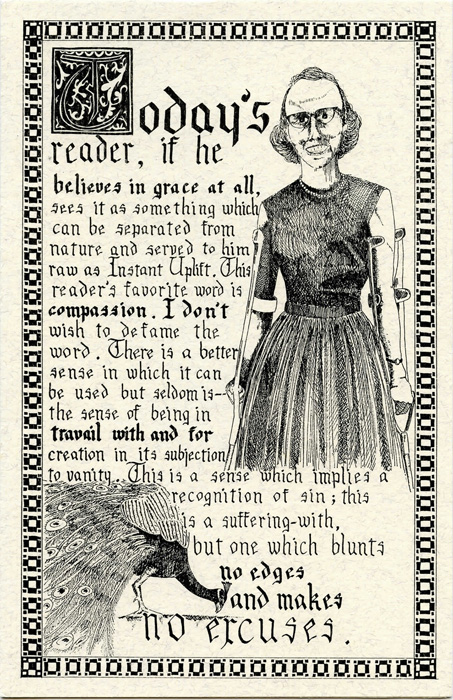 Today's
reader, if he
believes in grace at all,
sees it as something which
can be separated from
nature and served to him
raw as Instant Uplift. This
reader's favorite word is
compassion. I don't
wish to defame the
word. There is a better
sense in which it can
be used but seldom is--
the sense of being in
travail with and for
creation in its subjection
to vanity. This is a sense which implies a
recognition of sin; this
is a suffering-with,
but one which blunts
no edges
and makes
no excuses.